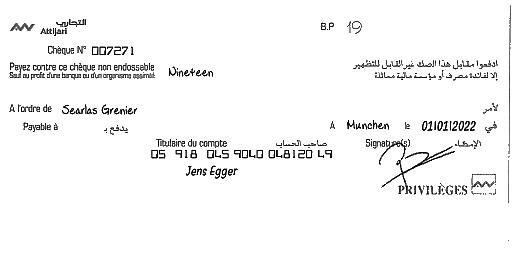 التجاري
Attijari
B.P 19
Chèque N° 007271
Payez contre ce chèque non endossable
Sauf au profit d'une banque ou d'un organisme assimilé
Nineteen
ادفعوا مقابل هذا الصك غير القابل للتظهير
إلا لفائدة مصرف أو مؤسسة مالية مماثلة
A l'ordre de Searlas Grenier لأمر
Payable à يدفع بـ
A Munchen le 01/01/2022 في
Titulaire du compte صاحب الحساب Signature(s) الإمضاء
05 918 045 9040 048120 49
Jens Egger
PRIVILÈGES